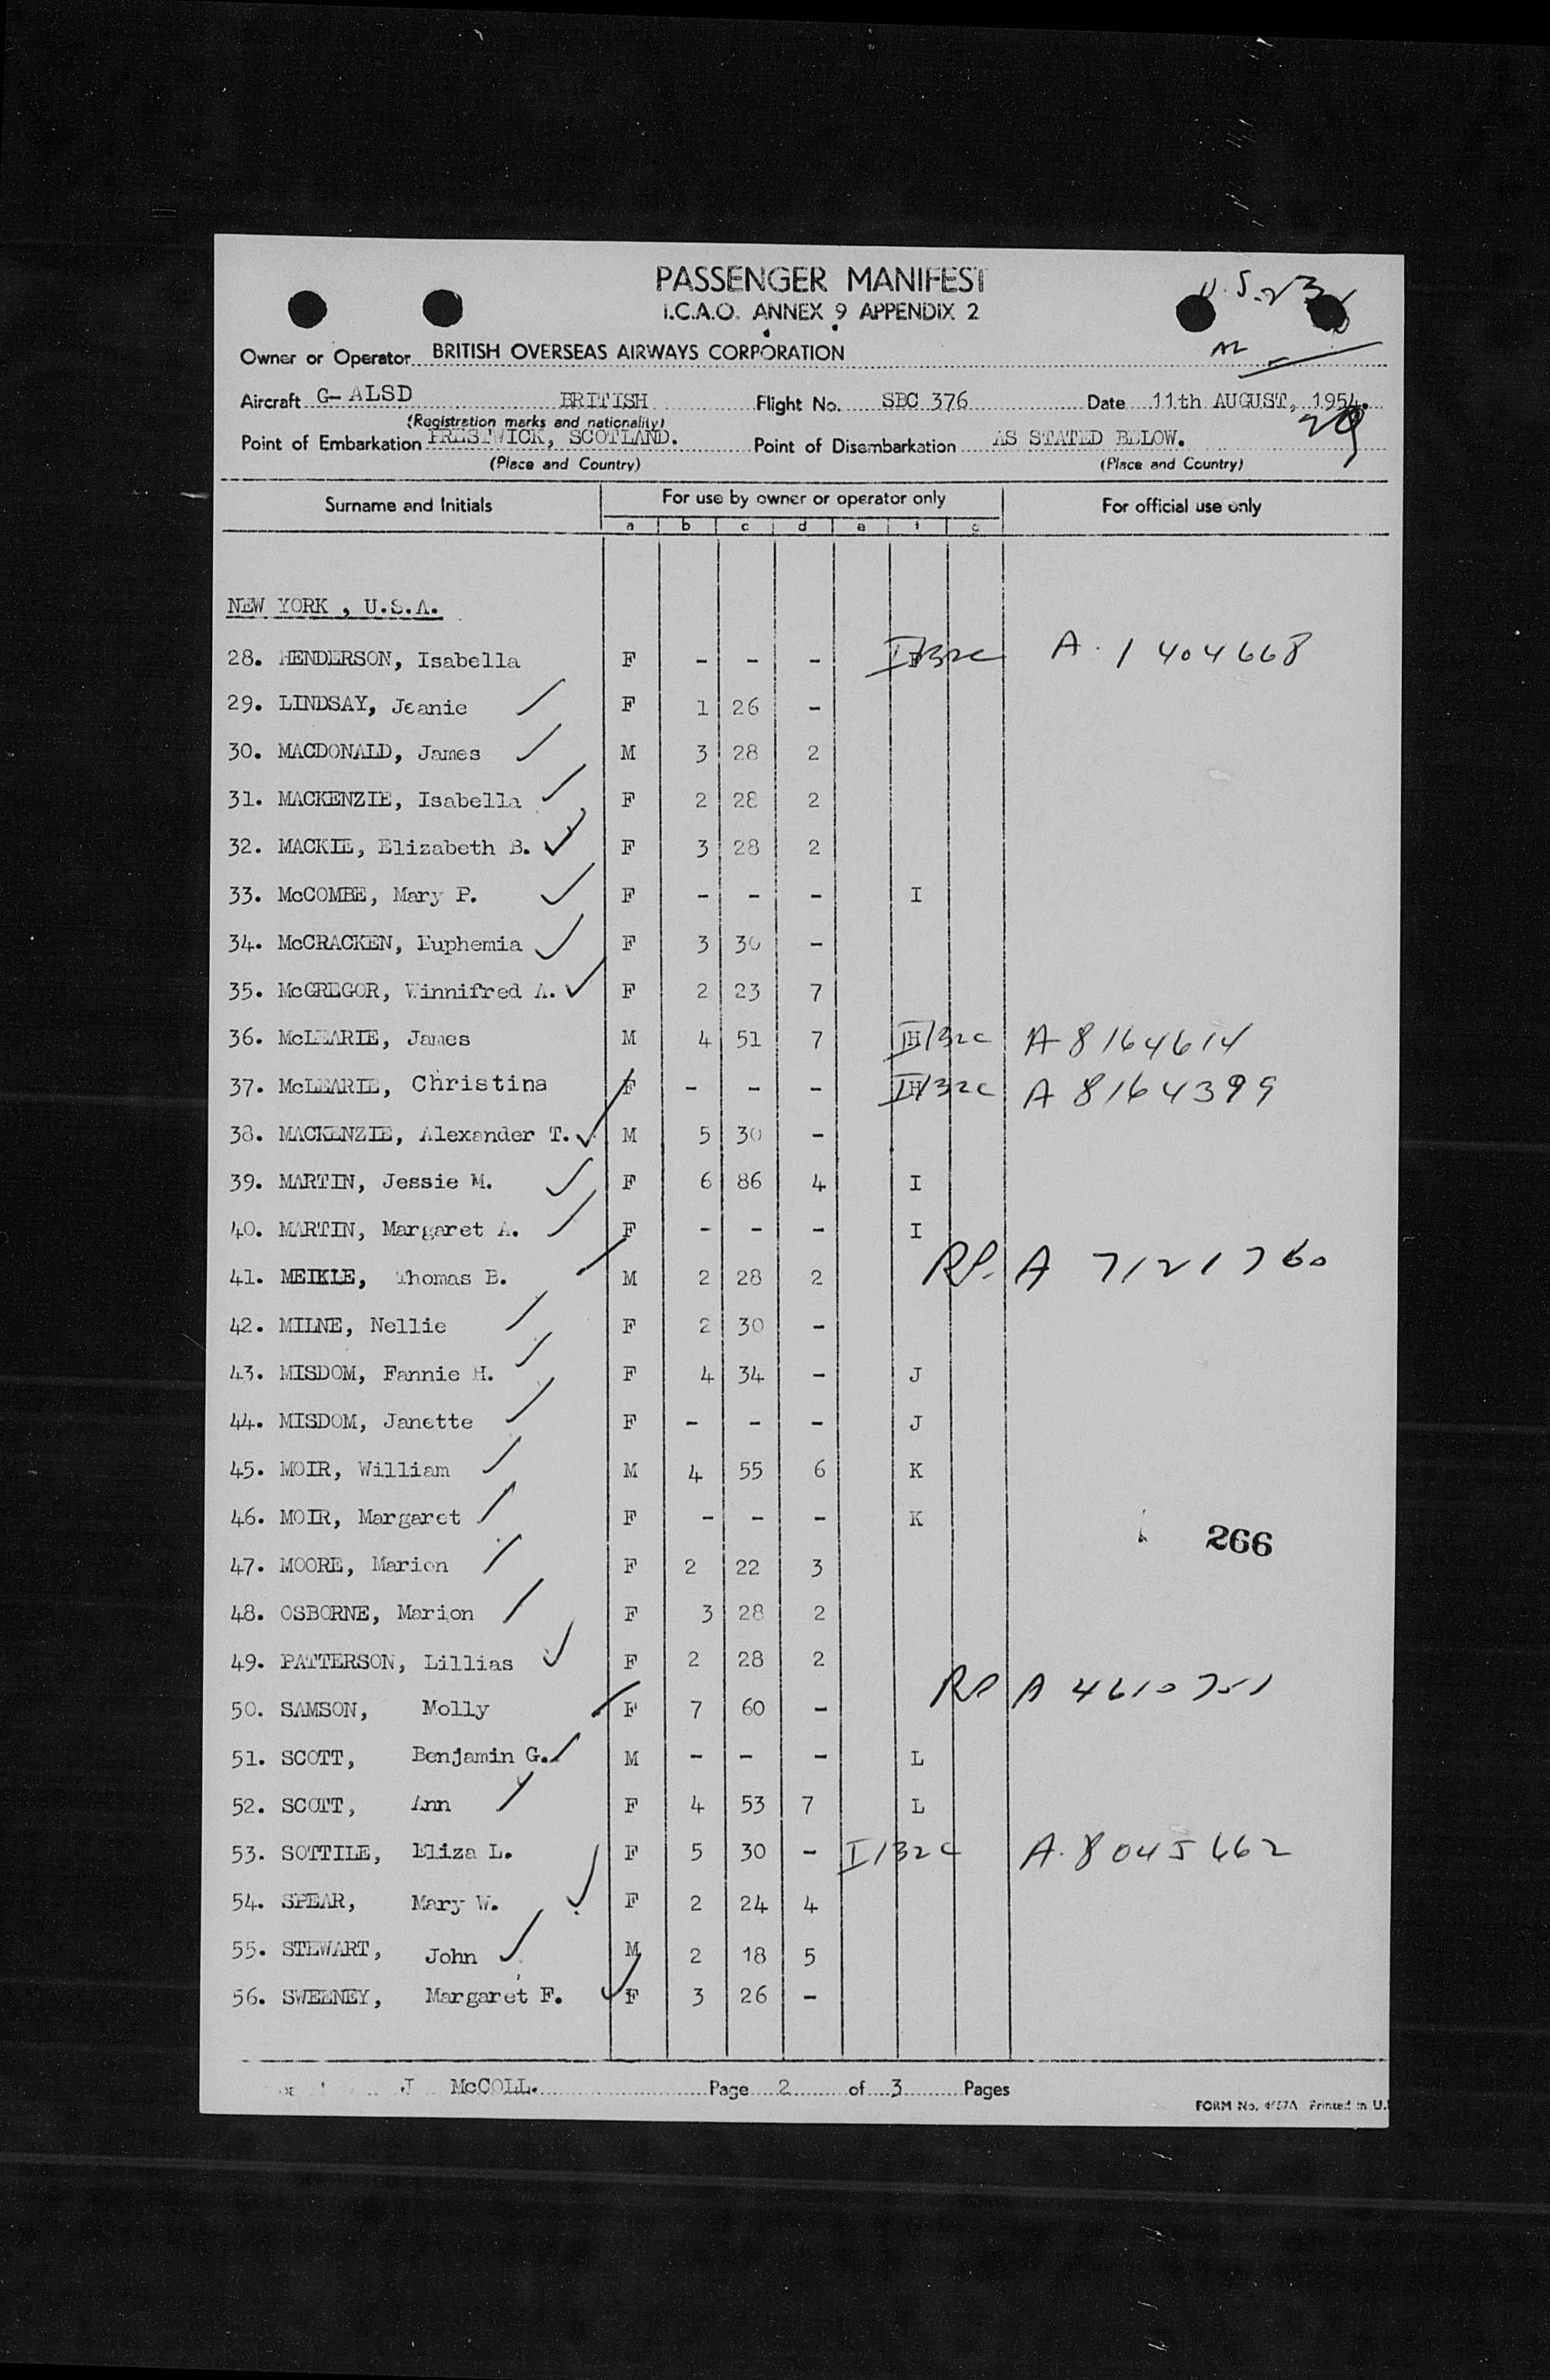 PASSENGER MANIFEST
I.C.A.O. ANNEX 9 APPENDIX 2
U.S. 23
Owner or Operator BRITISH OVERSEAS AIRWAYS CORPORATION
Aircraft G-ALSD BRITISH Flight No. SBC 376 Date 11th AUGUST, 1954.
(Registration marks and nationality)
Point of Embarkation PRESTWICK, SCOTLAND. Point of Disembarkation AS STATED BELOW. 29
(Place and Country) (Place and Country)
Surname and Initials For use by owner or operator only For official use only
a b c d e f g
NEW YORK , U.S.A.
28. HENDERSON, Isabella F - - - I/132c A. 1404668
29. LINDSAY, Jeanie F 1 26 -
30. MACDONALD, James M 3 28 2
31. MACKENZIE, Isabella F 2 28 2
32. MACKIE, Elizabeth B. F 3 28 2
33. McCOMBE, Mary P. F - - - I
34. McCRACKEN, Euphemia F 3 30 -
35. McGREGOR, Winnifred A. F 2 23 7
36. McLEARIE, James M 4 51 7 H I/132c A 8164614
37. McLEARIE, Christina F - - - H I/132c A 8164399
38. MACKENZIE, Alexander T. M 5 30 -
39. MARTIN, Jessie M. F 6 86 4 I
40. MARTIN, Margaret A. F - - - I
41. MEIKLE, Thomas B. M 2 28 2 RP. A 7121760
42. MILNE, Nellie F 2 30 -
43. MISDOM, Fannie H. F 4 34 - J
44. MISDOM, Janette F - - - J
45. MOIR, William M 4 55 6 K
46. MOIR, Margaret F - - - K
266
47. MOORE, Marion F 2 22 3
48. OSBORNE, Marion F 3 28 2
49. PATTERSON, Lillias F 2 28 2
50. SAMSON, Molly F 7 60 - RP A 4610751
51. SCOTT, Benjamin G. M - - - L
52. SCOTT, Ann F 4 53 7 L
53. SOTTILE, Eliza L. F 5 30 - I/132c A. 8045662
54. SPEAR, Mary W. F 2 24 4
55. STEWART, John M 2 18 5
56. SWEENEY, Margaret F. F 3 26 -
J McCOLL. Page 2 of 3 Pages
FORM No. Printed in U.